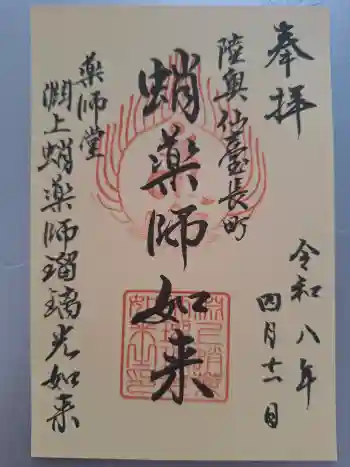 奉拝
令和八年
四月十二日
陸奥仙臺長町
蛸薬師如来
薬師堂
渕上蛸薬師瑠璃光如来